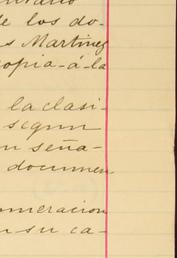 de los do-
s Martinez
copia-á-la
la clasi-
segun
n seña-
documen-
meracion
n su ca-